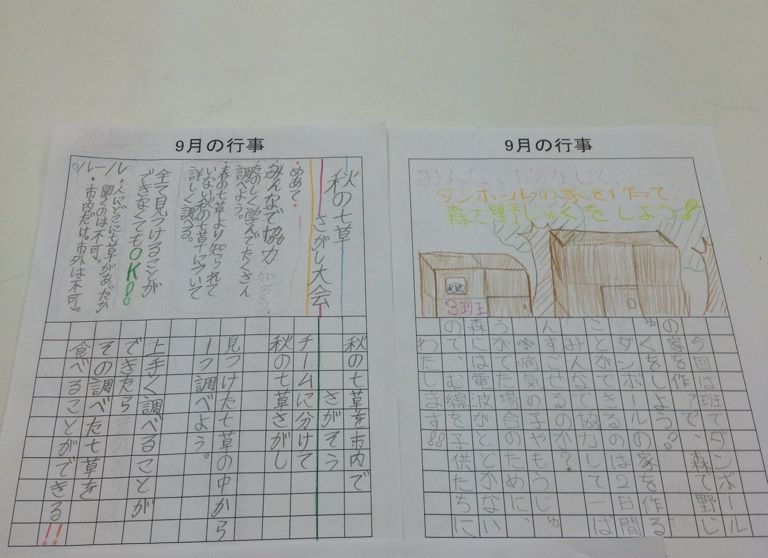 9月の行事
秋の七草
さがし大会
めあて・
みんなで協力
楽しく学んでたくさん
調べよう。
・春の七草より知られて
いない秋の七草について
詳しく調べる。
全て見つけることが
できなくてもOK!!
ルール
・人にどこに七草があったか
聞くのは不可。
・市内だけ。市外は不可。
秋の七草を市内で
さがそう
チームに分けて
秋の七草さがし
見つけた七草の中から
一つ調べよう。
上手く調べることが
できたら
その調べた七草を
食べることができる!!
9月の行事
みんなで協力して、
ダンボールの家を作って、
森で野じゅくをしよう!!
3班
今回は班で、ダンボール
の家を作って、森で野じ
ゅくをしよう?
ダンボールの家を作る
ことができるのは2日間
みんなで協力して一は
んすごせるのか?
※病気の子やもうじゅ
うがでた場合のために、
森には電波がとどかない
ので、む線を子供たちに
わたします!!